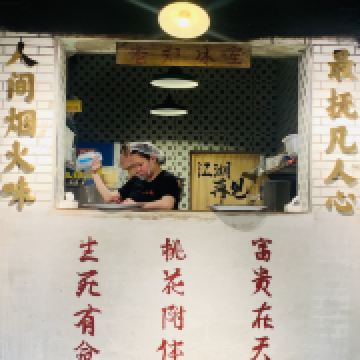 人间烟火味
最抚凡人心
江湖再见
生死有命
桃花附体
富贵在天